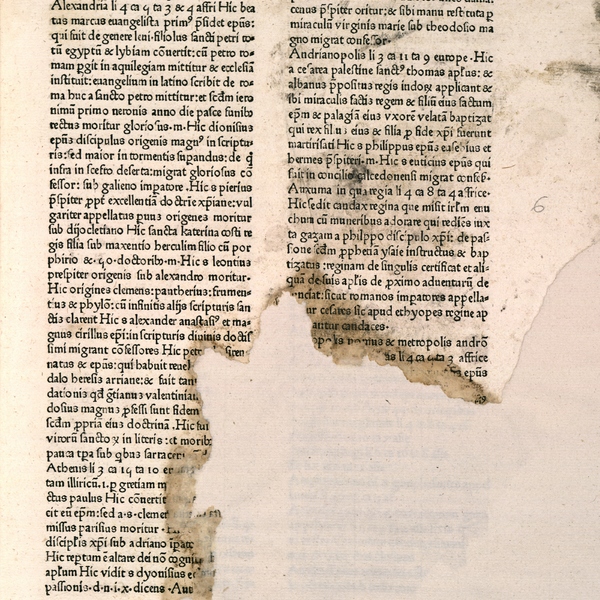 Alexandria li 4 ca 9 ta 3 & 4 affri Hic bea
tus marcus euangelista primꝰ p̄sidet ep̄us:
qui suit de genere leui·filiolus sancti petri to
tū egyptū & lybiam cōuertit: cū petro ro-
mam ꝑgit in aquilegiam mittitur & ecclesiā
instituit: euangelium in latino scribit de ro-
ma huc a sancto petro mittitur: et scd̄m iero
nimū primo neronis anno die pasce funibꝰ
rectus moritur gloriosus·m·Hic dionisius
ep̄us discipulus origenis magnꝰ in scriptu-
ris: sed maior in tormentis supandus: de q̄
infra in scefto deserta: migrat gloriosus cō
fessor: sub galieno impatore. Hic s pierius
p̄spiter ꝓpt̄ excellentiā doctrīe xp̄iane: vul
gariter appellatus pnnꝫ origenes moritur
sub dijocletiano Hic sancta katerina costi re
gis filia sub maxentio herculim filio cū por
phirio & ·50· doctoribꝰ·m·Hic s leontius
prespiter origenis sub alexandro moritur·
Hic origines clemens: pantherius: frumen-
tꝰus & phylō: cū infinitis alijs scripturis san
ctis clarent Hic s alexander anastasiꝰ et ma-
gnus cirillus ep̄i: in scripturis diuinis doctis
simi migrant cō̄fessores Hic pet
natas & ep̄us: qui babuit
dalo heresis arriane: &
dationis qd̄ gtianus valentinian
dosius magnus ꝓfessi sunt fidem
scd̄m ꝓpriā eius doctrinā. Hic
virorū sancto℞ in literis: et
pauca tpa sub qbus
Athenis li 3 ca 15 ta 10
tam illiricū.1.p gretiam
ctus paulus Hic cōuertit
cit eū ep̄m: sed a·s·clemen
missus parisius moritur·
disciplis xp̄i sub adriano
Hic reptum ē altare dei nō
apl̄um Hic vidit s dyonisius
passionis·d·n·i·x·dicens·
p̄spiter oritur: & sibi manu restituta p
miraculū virginis marie sub theodosio ma
gno migrat confessor·
Andrianopolis li 3 ca 11 ta 9 europe·Hic
a cesarea palestine sanctꝰ thomas apl̄us: &
albanus p̄positus regis indoꝝ applicant &
ibi miraculis factis regem & filiū eius factum
ep̄m & palagiā eius vxorē velatā baptizat
qui rex eius & filia ꝓ fide xp̄i fuerunt
martirisati Hic s philippus ep̄us & eusebius et
hermes p̄spiteri·m·Hic s euticius ep̄us qui
fuit in concilio calcedonensi migrat
Auxuma in qua regia li 4 ca 8 ta 4 affrice·
Hic sedit candax regina que misit irl̄m enu
chum cū muneribus adorare qui rediēs iux
ta gazam a philippo discipulo xp̄i: de pas-
sione scd̄m ꝓphetiā ysaie instructus & bap
tizatus: reginam de singulis certificat et ali-
quā de suis apl̄is de ꝓximo aduenturū de
sicut romanos impatores appella-
cesares sic apud ethyopes regine ap
candaces·
& metropolis andrō
affrice
ep̄us
6